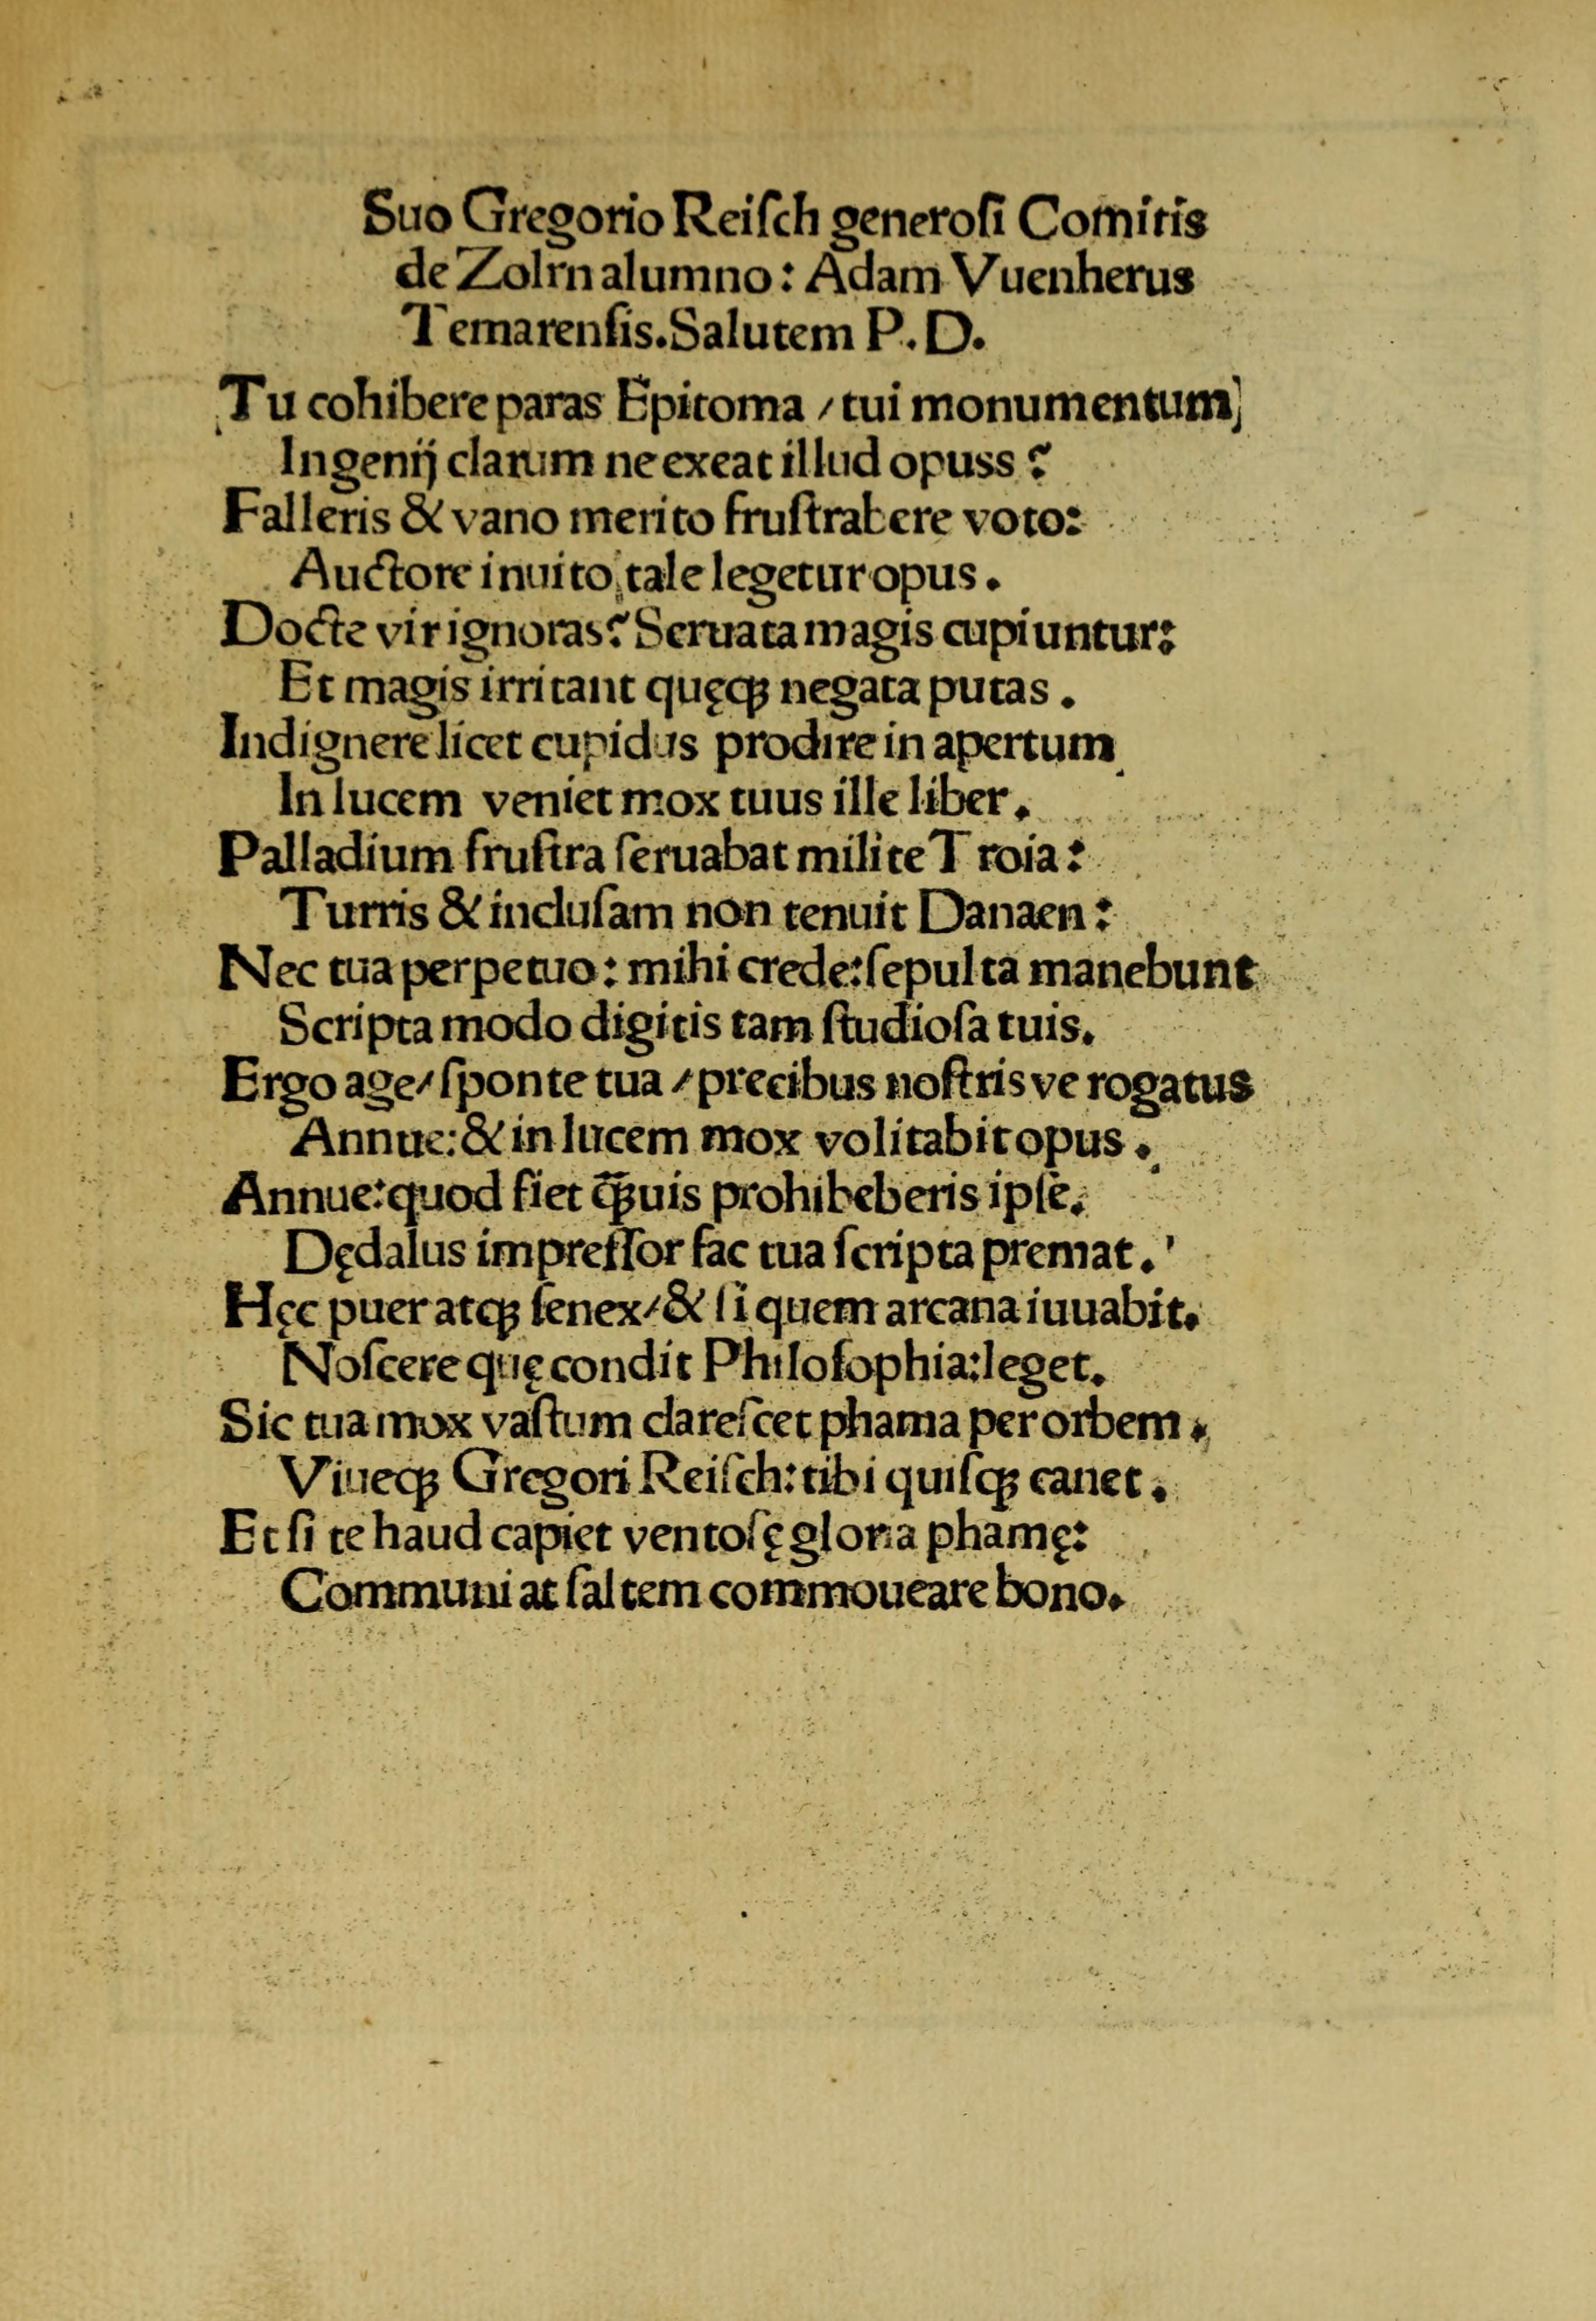 Suo Gregorio Reiſch generoſi Comitis
de Zolrn alumno: Adam Vuenherus
Temarenſis. Salutem P. D.
Tu cohibere paras Epitoma / tui monumentum
Ingenij clarum ne exeat illud opuss ?
Falleris & vano merito fruſtrabere voto:
Auctore inuito tale legetur opus.
Docte vir ignoras? Seruata magis cupiuntur:
Et magis irritant quęqꝫ negata putas.
Indignere licet cupidus prodire in apertum
In lucem veniet mox tuus ille liber.
Palladium fruſtra ſeruabat milite Troia:
Turris & incluſam non tenuit Danaen:
Nec tua perpetuo: mihi crede: ſepulta manebunt
Scripta modo digitis tam ſtudioſa tuis.
Ergo age / ſponte tua / precibus noſtris ve rogatus
Annue: & in lucem mox volitabit opus.
Annue: quod fiet q̄ꝫuis prohibeberis ipſe.
Dędalus impreſſor fac tua ſcripta premat.
Hęc puer atqꝫ ſenex / & ſi quem arcana iuuabit.
Noſcere quę condit Philoſophia: leget.
Sic tua mox vaſtum clareſcet phama per orbem.
Viueqꝫ Gregori Reiſch: tibi quiſqꝫ canet.
Et ſi te haud capiet ventoſę gloria phamę:
Communi at ſaltem commoueare bono.